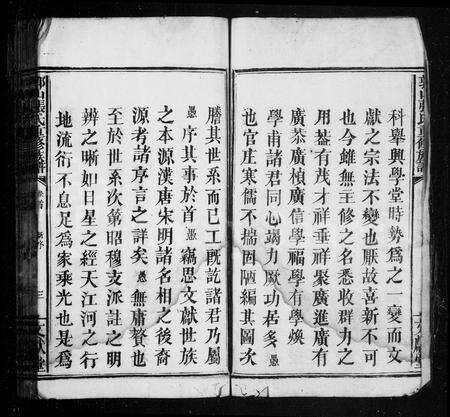 科舉興學堂時勢爲之一變而文
獻之宗法不變也厭故喜新不可
也今雖無主修之名悉收群力之
用蓋有茂才祥垂祥聚廣進廣有
廣恭廣楨廣信學福學有學煥
學甫諸君同心竭力厥功居多愚
也官庄寒儒不揣固陋編其圖次
謄其世系而已工既訖諸君乃屬
愚序其事於首竊思文獻世族
之本源漢唐宋明諸名相之後裔
源者諸序言之詳矣愚無庸贅也
至於世系次第昭穆支派註之明
辨之晰如日星之經天江河之行
地流衍不息足爲家乘光也是爲